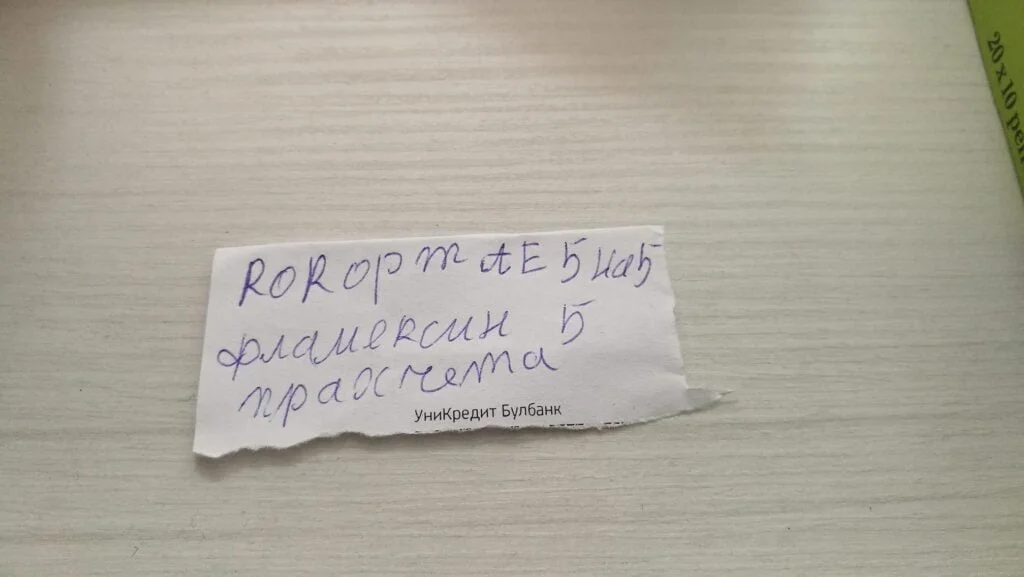 RORорт АЕ 5 на 5
фламексин 5
прахчета
УниКредит Булбанк
20 x 10